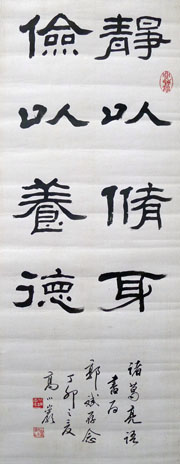 靜以脩身
儉以養德
諸葛亮語
書為
郭斌存念
丁卯之夏
高小巖